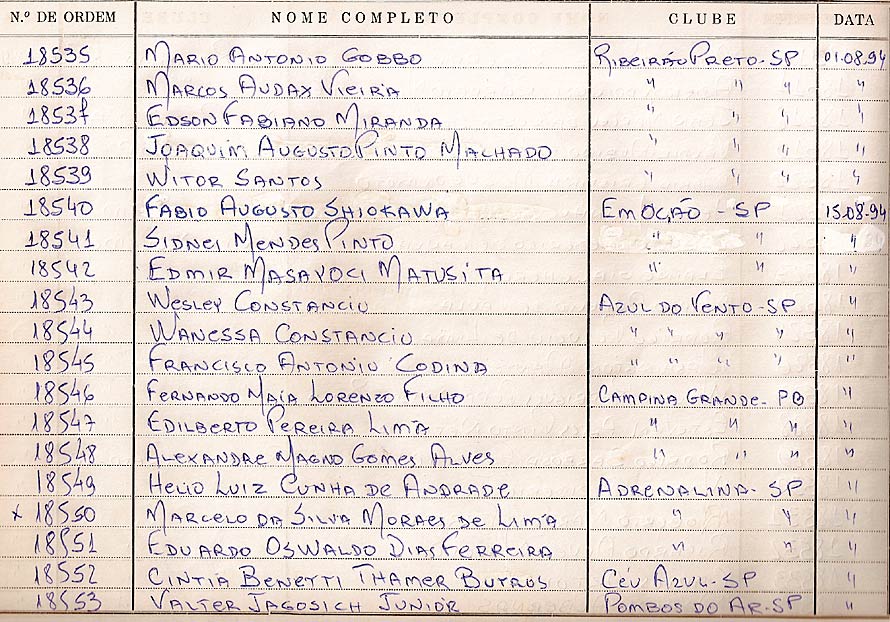 N.º DE ORDEM NOME COMPLETO CLUBE DATA
18535 MARIO ANTONIO GOBBO RIBEIRÃO PRETO-SP 01.08.94
18536 MARCOS AUDAX VIEIRA " " " "
18537 EDSON FABIANO MIRANDA " " " "
18538 JOAQUIM AUGUSTO PINTO MACHADO " " " "
18539 WITOR SANTOS " " " "
18540 FABIO AUGUSTO SHIOKAWA EMOÇÃO - SP 15.08.94
18541 SIDNEI MENDES PINTO " " "
18542 EDMIR MASAYOCI MATUSITA " " "
18543 WESLEY CONSTANCIO AZUL DO VENTO-SP "
18544 WANESSA CONSTANCIO " " " " "
18545 FRANCISCO ANTONIO CODINA " " " " "
18546 FERNANDO MAIA LORENZO FILHO CAMPINA GRANDE- PB "
18547 EDILBERTO PEREIRA LIMA " " " "
18548 ALEXANDRE MAGNO GOMES ALVES " " " "
18549 HELIO LUIZ CUNHA DE ANDRADE ADRENALINA- SP "
x 18550 MARCELO DA SILVA MORAES DE LIMA " " "
18551 EDUARDO OSWALDO DIAS FERREIRA " " "
18552 CINTIA BENETTI THAMER BUTROS CÉU AZUL-SP "
18553 VALTER JAGOSICH JUNIOR POMBOS DO AR-SP "